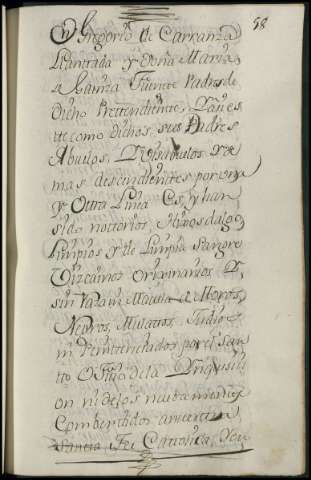 58
Gregorio de Carranza
y Doña Maria
de Fuente Padres de
Dicho Pretendiente,
como dichos, sus Padres
Abuelos, Visabuelos y de
mas descendientes por una
y Outra Linea Es, y han
sido nottorios, Hixosdalgo,
Limpios y de Limpia Sangre
Vizcainos Orixinarios Y
sin Raza ni Macula de Moros,
Negros, Mulattos Judios
ni Penitenciados por el San
tto Ofizio de la Ynquisizi
on ni de los nuebamente
Combertidos a nuestra
Santta Fee Cattolica,